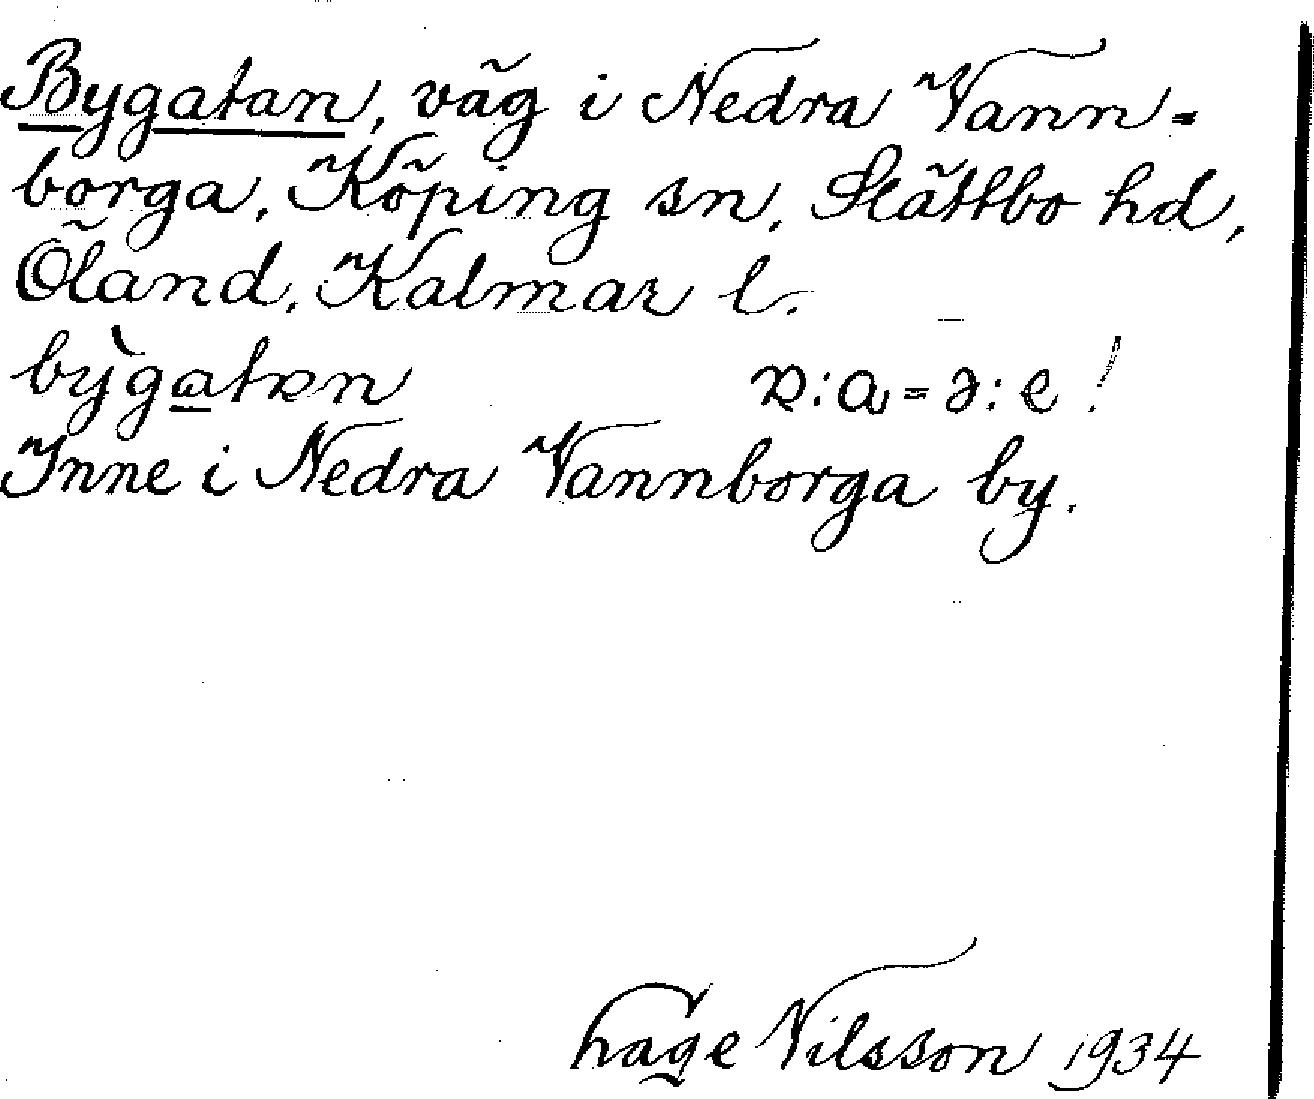 Bygatan, väg i Nedra Vann=
borga, Köping sn, Slättbo hd,
Öland, Kalmar l.
bỳgatɐn ɐ:a = ə:e!
Inne i Nedra Vannborga by.
Hage Nilsson 1934